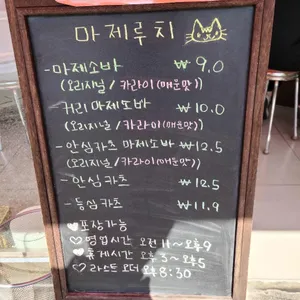 마제루치
- 마제소바 ₩9.0
(오리지널/카라이(매운맛))
커리 마제소바 ₩10.0
(오리지널/카라이(매운맛))
- 안심카츠 마제소바 ₩12.5
(오리지널/카라이(매운맛))
- 안심카츠 ₩12.5
- 등심카츠 ₩11.9
♡포장가능
♡영업시간 오전 11~오후9
♡휴게시간 오후 3~오후5
♡라스트 오더 오후 8:30